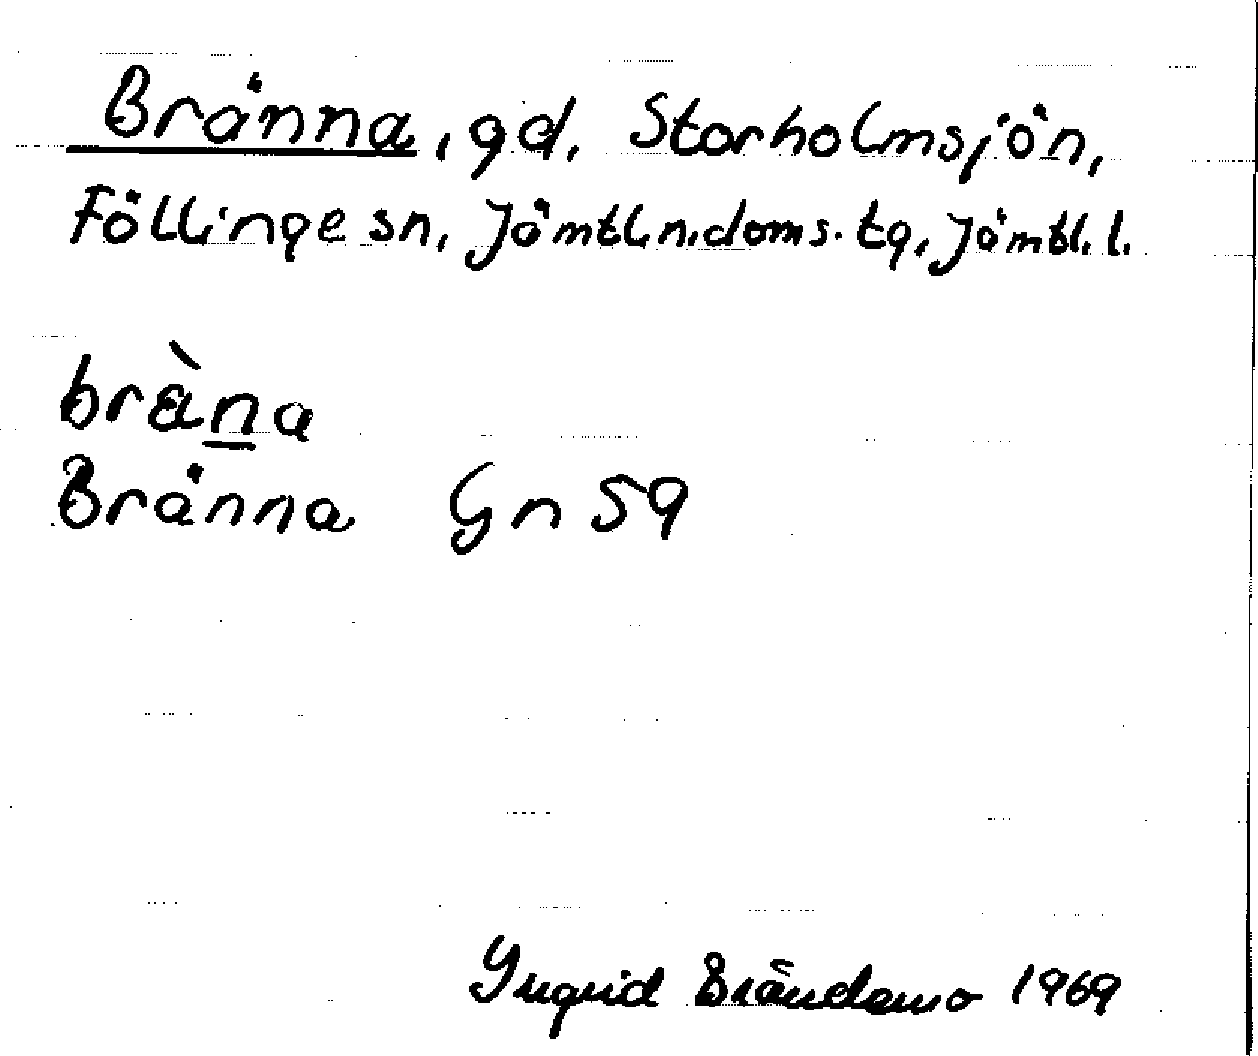 Bränna, gd. Storholmsjön,
Föllinge sn, Jämtl.n.doms.tg, Jämtl.l.
brä̀n̲a
Bränna Gn 59
Yngrid Brändemo 1969